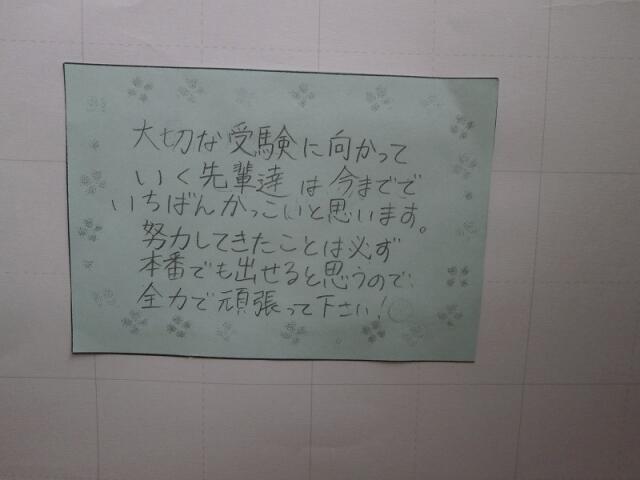 大切な受験に向かって
いく先輩達は今までで
いちばんかっこいいと思います。
努力してきたことは必ず
本番でも出せると思うので、
全力で頑張って下さい!